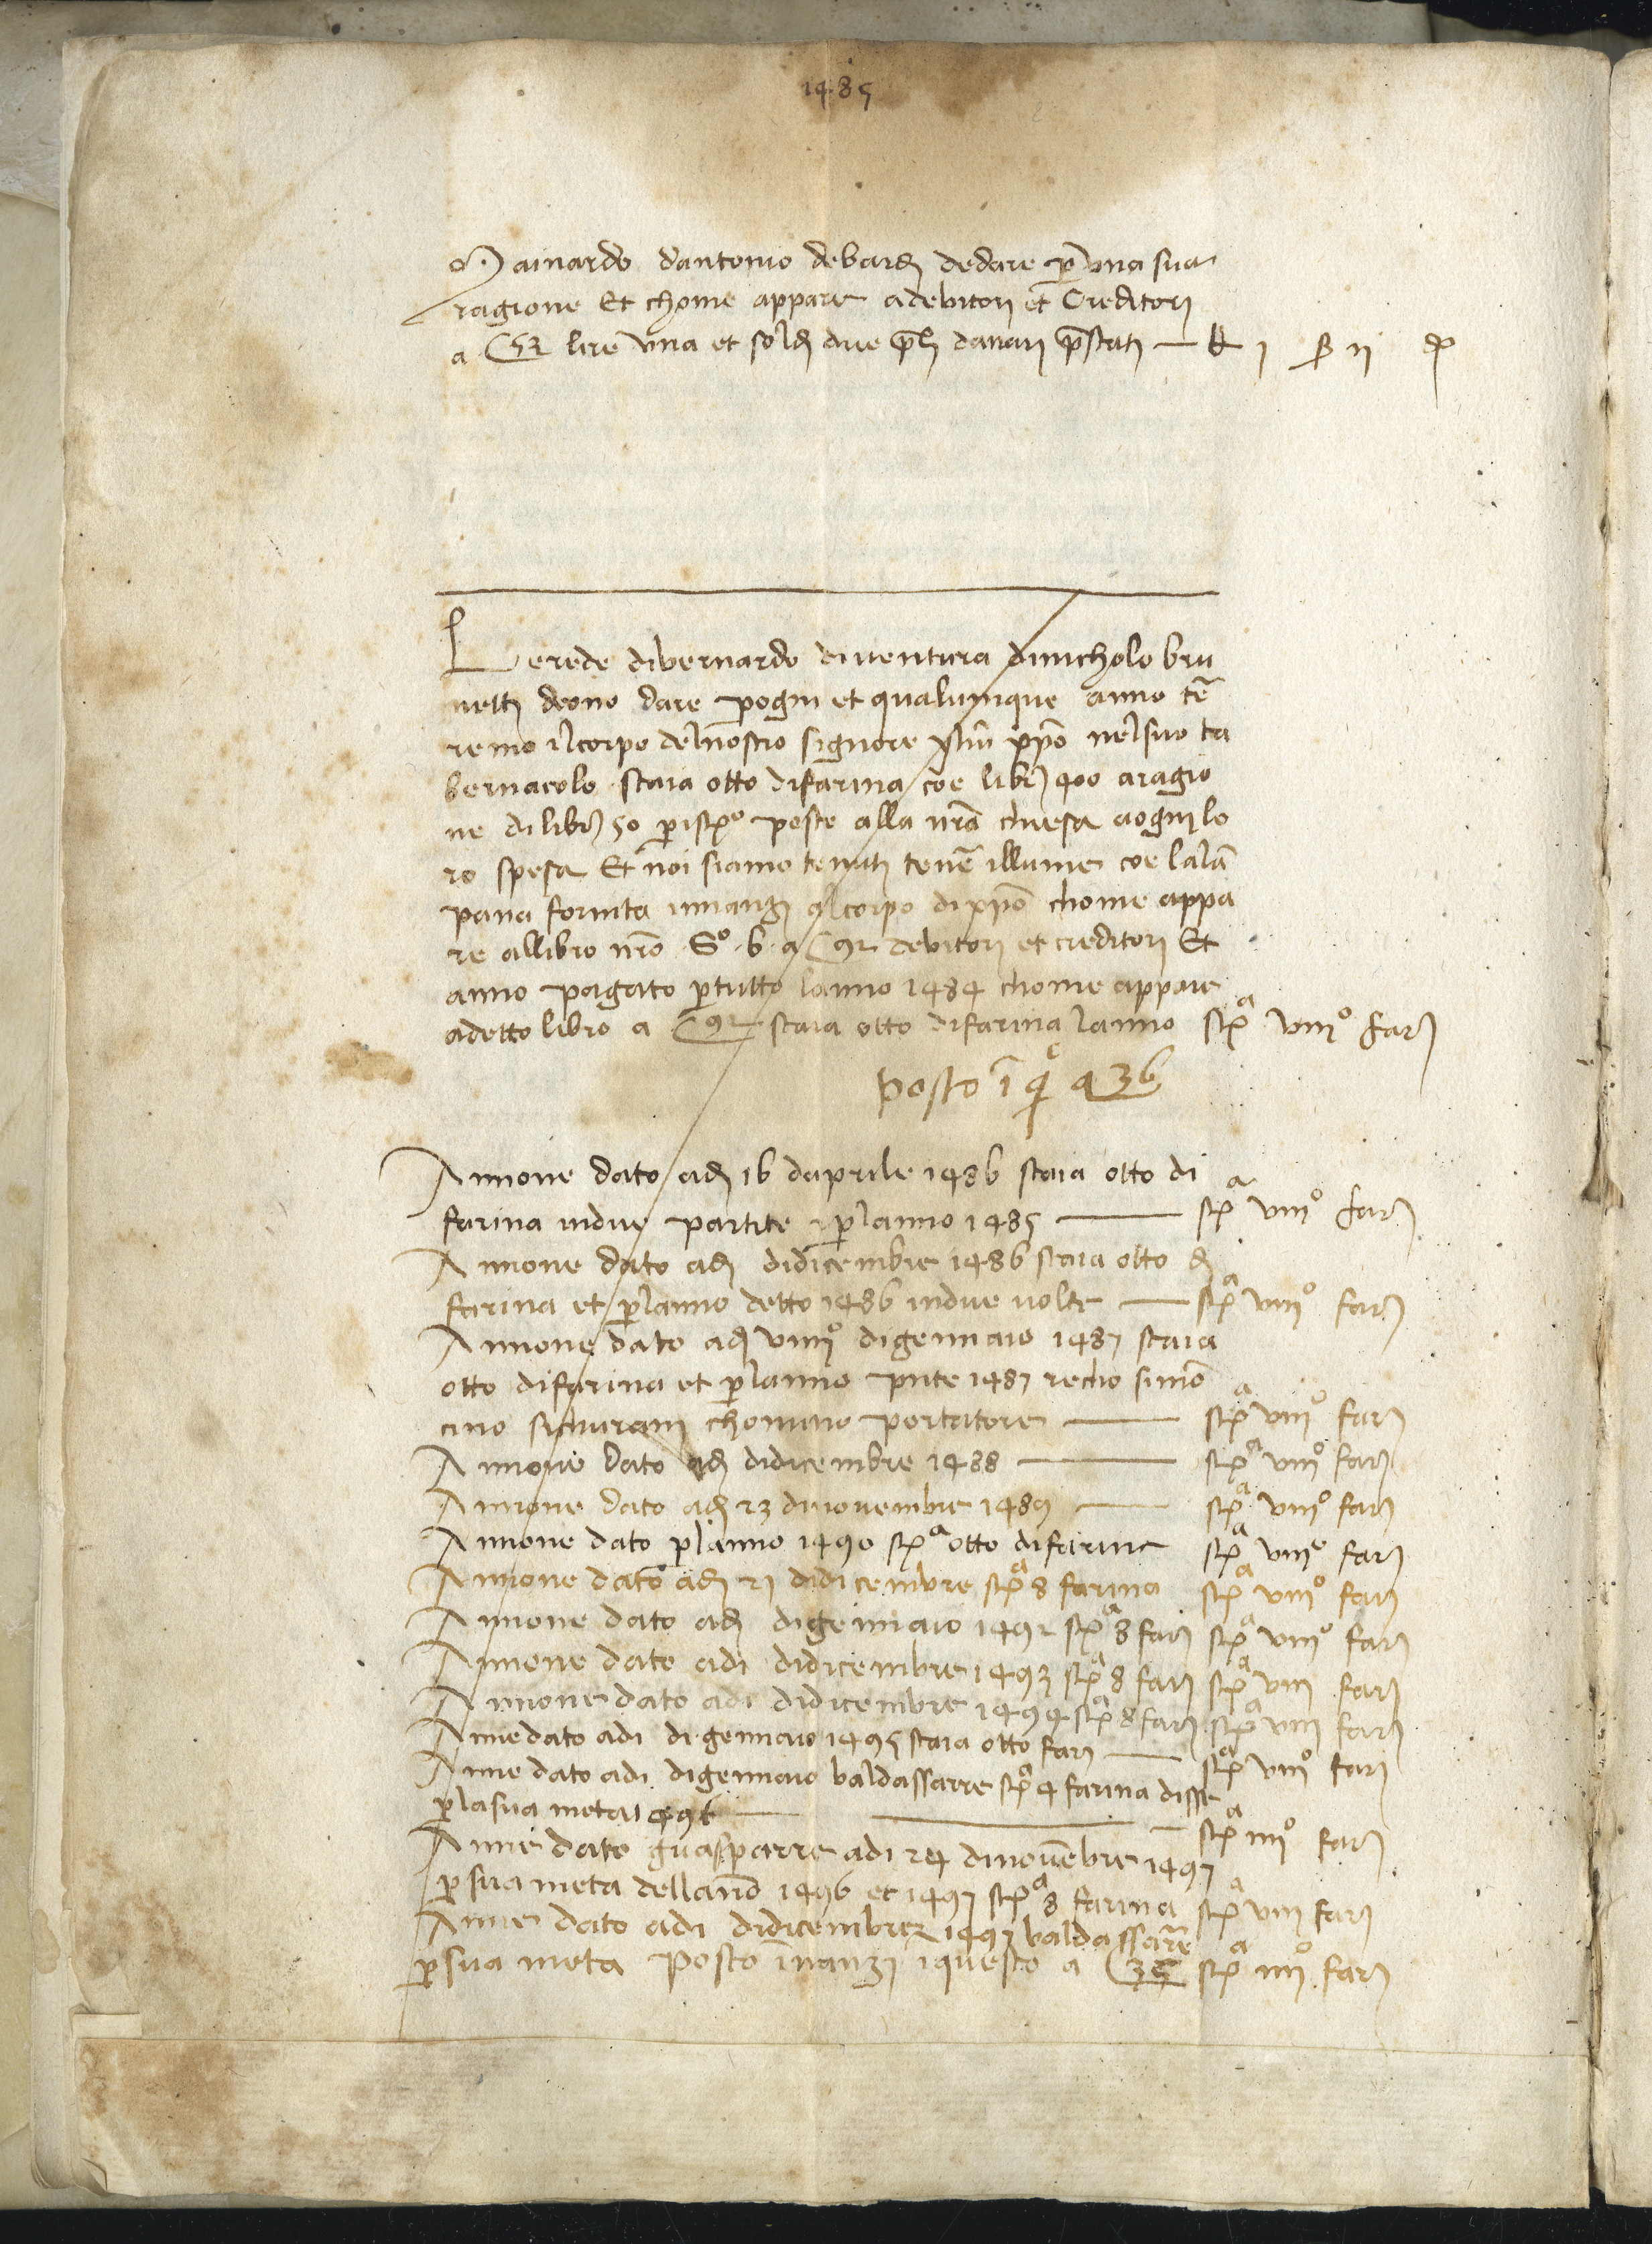 1485
Mainardo dantonio debardi dedare p una sua
ragione Et chome appare adebitori et Creditori
a C 52 lire una et soldi due pli danari pstati — £ 1 ß 11 d
Lerede dibernardo diventura dinicholo bru
netti deono dare pogni et qualunque anno te
remo ilcorpo delnostro signore yhu xpo nelsuo ta
bernacolo staia otto difarina coe libr 400 aragio
ne dilibr 50 p istº poste alla nra chiesa aogni lo
ro spesa Et noi siamo tenuti tene illume coe lalam
pana fornita innanzi alcorpo dixpo chome appa
re allibro nro Sº b a C 92 debitori et creditori Et
anno pagato ptutto lanno 1484 chome appare
adetto libro a C 92 staia otto difarina lanno stª viiiº fari
posto i q a 36
Annone dato adi 16 daprile 1486 staia otto di
farina indue partite planno 1485 — stª viiiº fari
Annone dato adi didicembre 1486 staia otto di
farina et planno detto 1486 indue volte — stª viiiº fari
Annone dato adi viiiº digennaio 1487 staia
otto difarina et planno pnte 1487 recho simon
cino sichurani chomuno portatore — stª viiiº fari
Annone dato adi didicembre 1488 — stª viiiº fari
Annone dato adi 23 dinovembre 1489 — stª viiiº fari
Annone dato planno 1490 stª otto difarina stª viiiº fari
Annone dato adi 21 didicembre stª 8 farina stª viiiº fari
Annone dato adi digennaio 1492 stª 8 fari stª viiiº fari
Annone dato adi didicembre 1493 stª 8 fari stª viii fari
Annone dato adi didicembre 1494 stª 8 fari stª viii fari
Anne dato adi di gennaio 1495 staia otto fari — stª viiiº fari
Anne dato adi digennaio baldassarre stª 4 farina disse
plasua meta 1496 — stª iiiiº fari
Anne dato guasparre adi 24 dinovembre 1497
psua meta dellano 1496 et 1497 stª 8 farina stª viii fari
Anne dato adi didicembre 1497 baldassare
psua meta posto inanzi iquesto a C 36 stª iiiiº fari